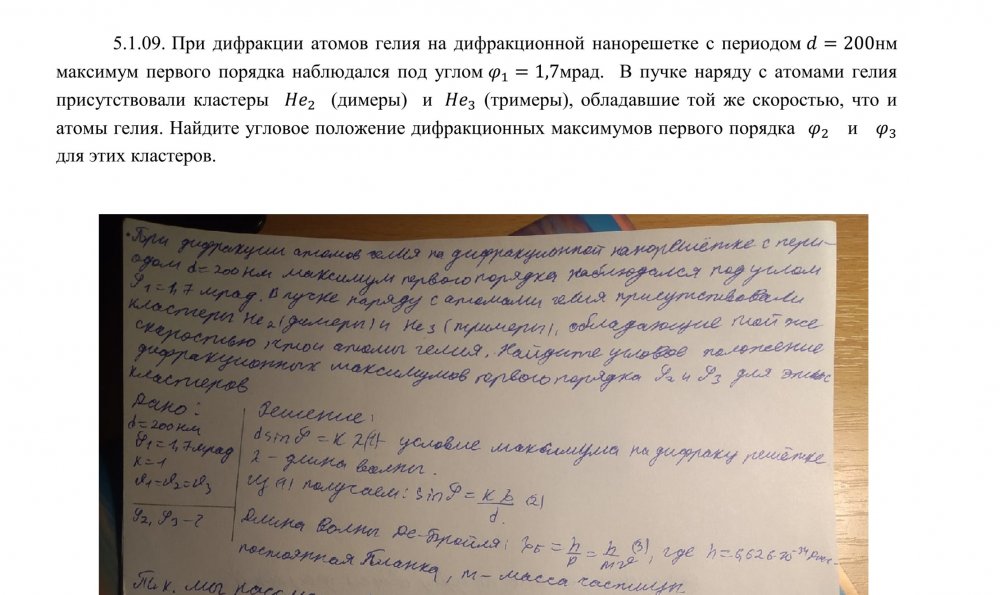 5.1.09. При дифракции атомов гелия на дифракционной нанорешетке с периодом 𝑑 = 200нм
максимум первого порядка наблюдался под углом 𝜑₁ = 1,7мрад. В пучке наряду с атомами гелия
присутствовали кластеры 𝐻𝑒₂ (димеры) и 𝐻𝑒₃ (тримеры), обладавшие той же скоростью, что и
атомы гелия. Найдите угловое положение дифракционных максимумов первого порядка 𝜑₂ и 𝜑₃
для этих кластеров.
При дифракции атомов гелия на дифракционной нанорешётке с пери-
одом d=200нм максимум первого порядка наблюдался под углом
φ₁=1,7мрад. В пучке наряду с атомами гелия присутствовали
кластеры He₂(димеры) и He₃ (тримеры), обладающие той же
скоростью, что и атомы гелия. Найдите угловое положение
дифракционных максимумов первого порядка φ₂ и φ₃ для этих
кластеров
Дано:
d=200нм
φ₁=1,7мрад
k=1
υ₁=υ₂=υ₃
φ₂, φ₃-?
Решение:
dsinφ=kλ(1)- условие максимума на дифрак решётке
λ-длина волны.
Из (1) получаем: sinφ=kλ/d (2)
Длина волны Де-Бройля: λБ=h/p=h/mυ (3), где h=6,626·10⁻³⁴
постоянная Планка, m-масса частицы
Т.к. мы